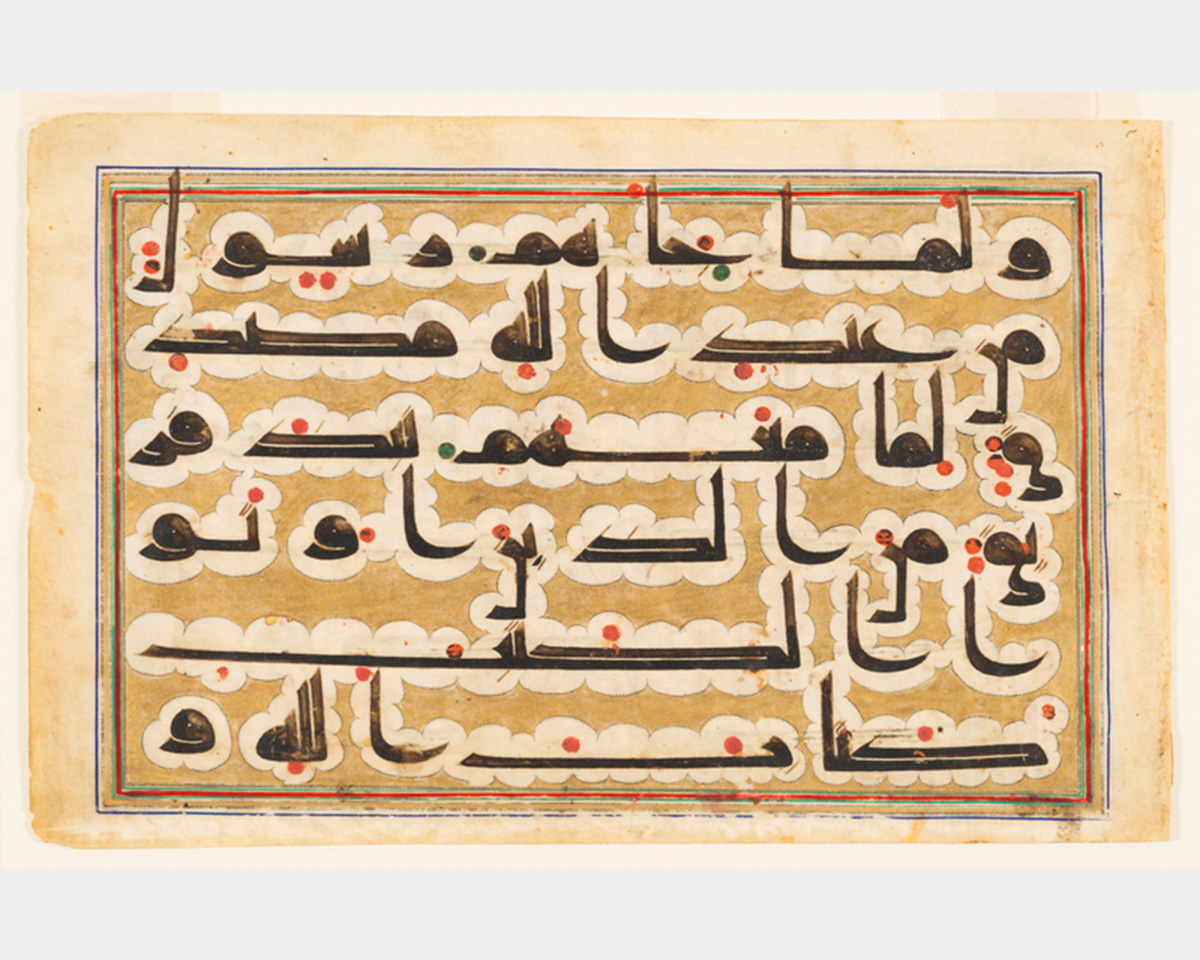 ولما جاهم رسول
من عند الله مصد
ق لما معهم نبذ فر
يق من الذين اوتو
ا الكتب
كتب الله و